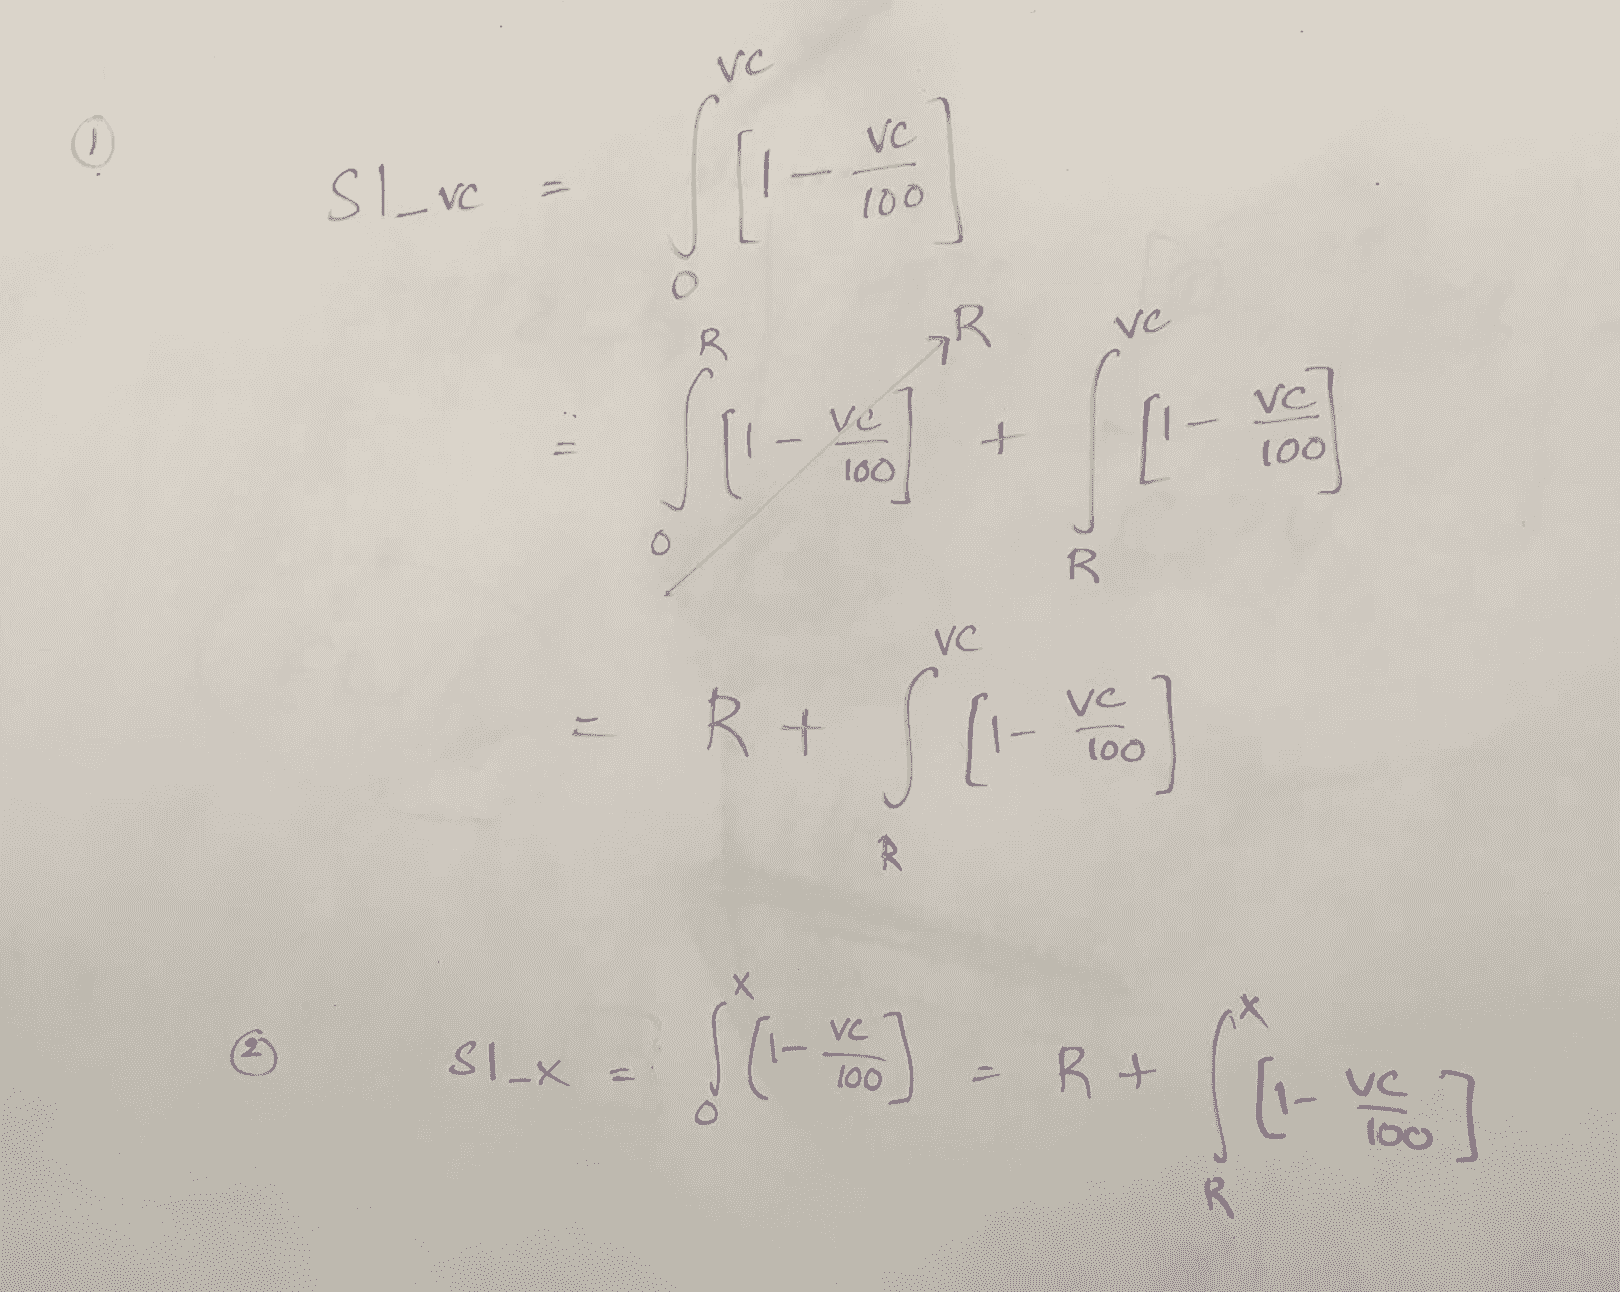 ① SI_VC = ∫_0^VC [1 - VC/100]
= ∫_0^R [1 - VC/100] → R + ∫_R^VC [1 - VC/100]
= R + ∫_R^VC [1 - VC/100]
② SI_X = ∫_0^X [1 - VC/100] = R + ∫_R^X [1 - VC/100]